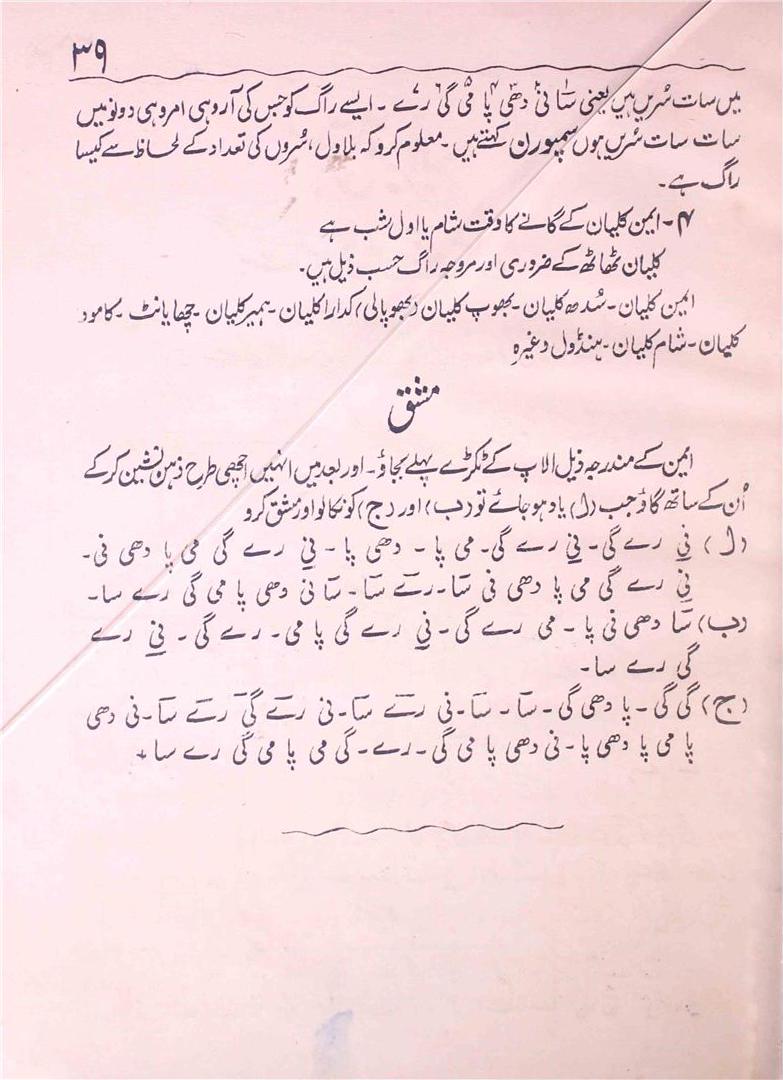 ۳۹
میں سات سُریں ہیں یعنی سَا۱ نی۲ دھی۳ پا۴ می۵ گی۶ رے۷ ۔ ایسے راگ کو جس کی آروہی امروہی دونو میں
سات سات سُریں ہوں سمپورن کہتے ہیں ۔ معلوم کرو کہ بلاول ، سُروں کی تعداد کے لحاظ سے کیسا
راگ ہے ۔
۴ ۔ ایمن کلیان کے گانے کا وقت شام یا اول شب ہے
کلیان ٹھاٹھ کے ضروری اور مروجہ راگ حسب ذیل ہیں ۔
ایمن کلیان ۔ سُدھ کلیان ۔ بھوپ کلیان (بھوپالی) کدارا کلیان ۔ ہمیر کلیان ۔ چھایا نٹ ۔ کامود
کلیان ۔ شام کلیان ۔ ہنڈول وغیرہ
مشق
ایمن کے مندرجہ ذیل الاپ کے ٹکڑے پہلے بجاؤ ۔ اور بعد میں انہیں اچھی طرح ذہن نشین کر کے
اُن کے ساتھ گاؤ جب (ا) یاد ہو جائے تو (ب) اور (ج) کو نکالو اور مشق کرو
(ا) نی رے گی ۔ نی رے گی ۔ می پا ۔ دھی پا ۔ نی رے گی می پا دھی نی ۔
نی رے گی می پا دھی نی سَا ۔ رے سَا ۔ سَا نی دھی پا می گی رے سا ۔
(ب) سَا دھی نی پا ۔ می رے گی ۔ نی رے گی پا می ۔ رے گی ۔ نی رے
گی رے سا ۔
(ج) گی گی ۔ پا دھی گی ۔ سَا ۔ سَا ۔ نی رے سَا ۔ نی رے گی رے سَا ۔ نی دھی
پا می پا دھی پا ۔ نی دھی پا می گی ۔ رے ۔ گی می پا می گی رے سا +